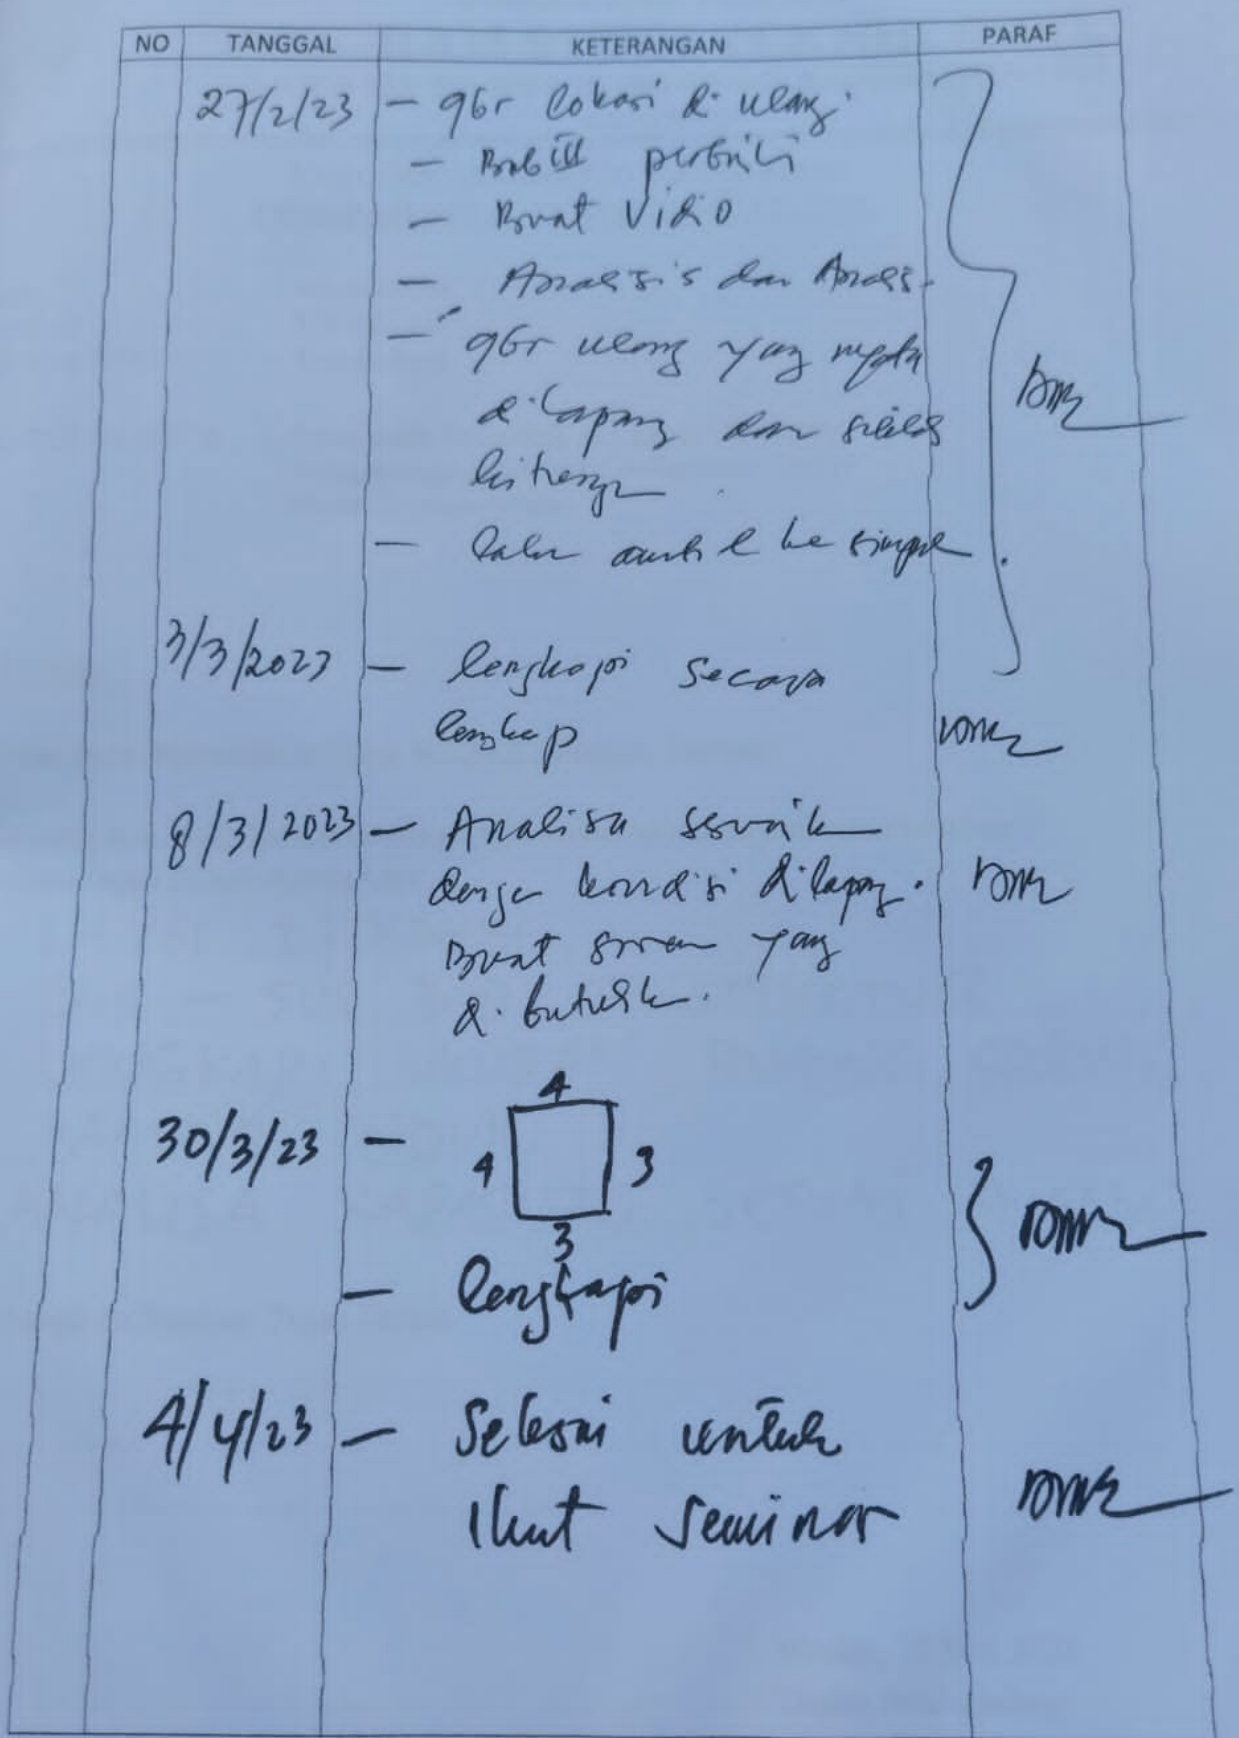 NO TANGGAL KETERANGAN PARAF
27/2/23 - gbr lokasi di ulang.
- Bab III perbaiki
- Buat Vidio
- Analisis dan
- gbr ulang yang
di lapang dan
- lalu ambil ke simpul
3/3/2023 - lengkapi secara
lengkap
8/3/2023 - Analisa sesuaik
dengan kondisi di lapang.
Buat yang
di butuhk.
4
30/3/23 -
4 3
3
- lengkapi
4/4/23 - Selesai untuk
Ikut Seminar